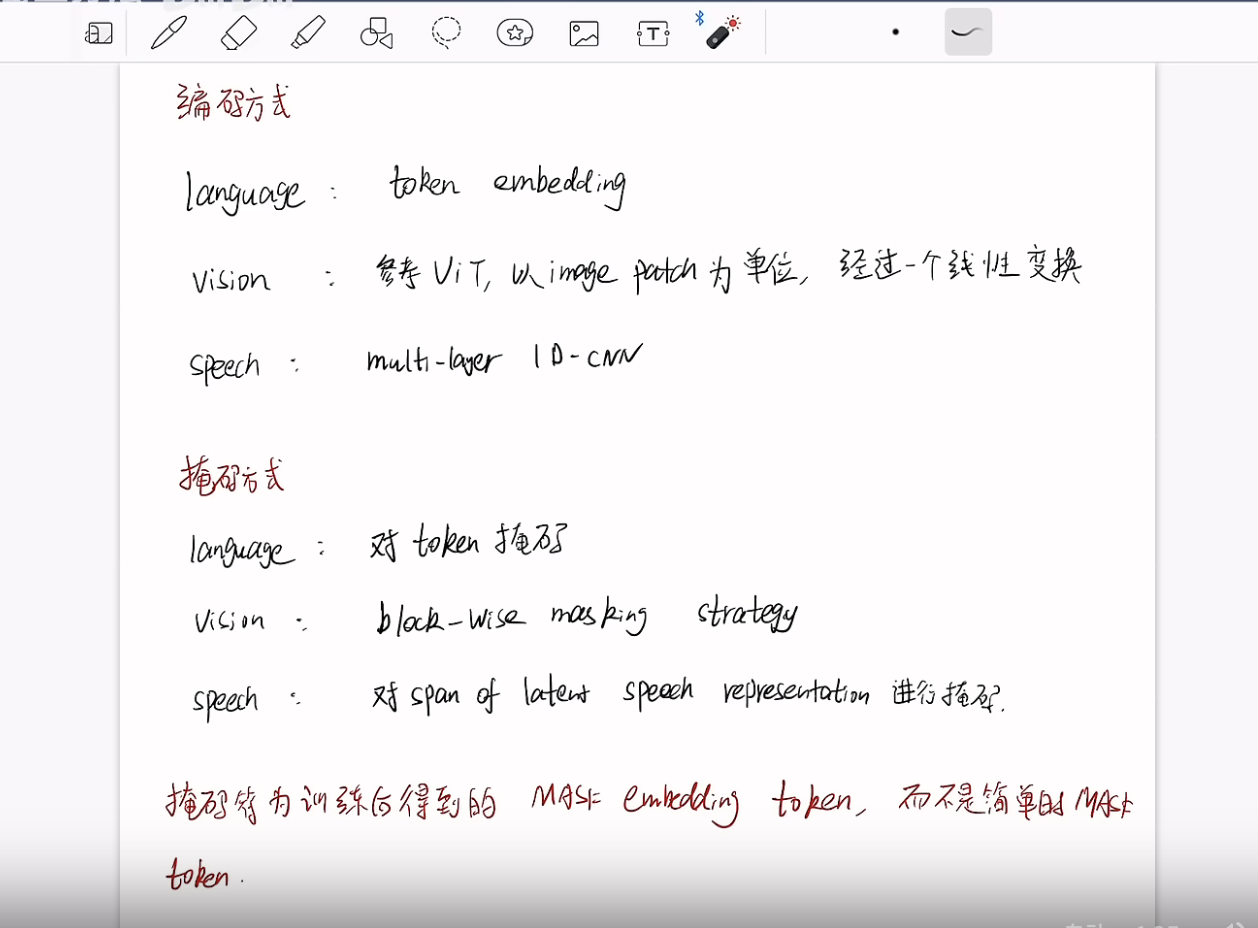 编码方式
language : token embedding
vision : 参考 ViT, 以 image patch 为单位, 经过一个线性变换
speech : multi-layer 1D-CNN
掩码方式
language : 对 token 掩码
vision : block-wise masking strategy
speech : 对 span of latent speech representation 进行掩码.
掩码符为训练后得到的 MASK embedding token, 而不是简单的 MASK
token.